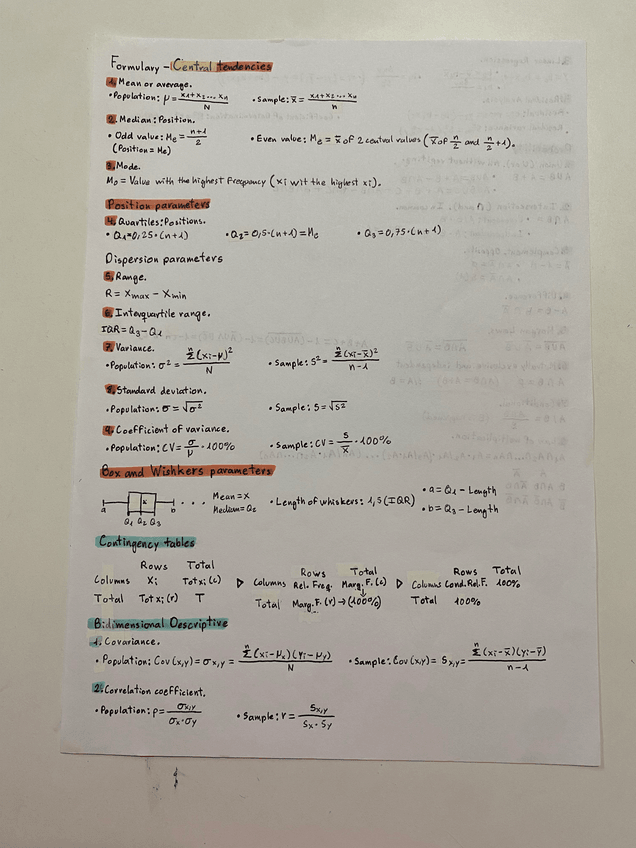 Formulary - Central tendencies
1. Mean or average.
• Population: μ = x1+x2... xn / N • Sample: x̄ = x1+x2... xn / n
2. Median: Position.
• Odd value: Me = n+1 / 2 • Even value: Me = x̄ of 2 central values (x̄ of n/2 and n/2 +1).
(Position = Me)
3. Mode.
Mo = Value with the highest Frequency (xi wit the highest xi).
Position parameters
4. Quartiles: Positions.
• Q1=0,25·(n+1) • Q2=0,5·(n+1)=Me • Q3=0,75·(n+1)
Dispersion parameters
5. Range.
R = Xmax - Xmin
6. Interquartile range.
IQR = Q3 - Q1
7. Variance.
• Population: σ² = Σⁿ(xi-μ)² / N • Sample: S² = Σⁿ(xi-x̄)² / n-1
8. Standard deviation.
• Population: σ = √σ² • Sample: S = √S²
9. Coefficient of variance.
• Population: CV = σ/μ · 100% • Sample: CV = S/x̄ · 100%
Box and Wishkers parameters
a x b Q1 Q2 Q3 • • • Mean = x • Length of whiskers: 1,5(IQR) • a = Q1 - Length
Median = Q2 • b = Q3 - Length
Contingency tables
Rows Total Rows Total Rows Total
Columns Xi Tot xi (c) ▷ Columns Rel. Freq. Marg. F. (c) ▷ Columns Cond. Rel. F. 100%
Total Tot xi (r) T Total Marg. F. (r) → (100%) Total 100%
Bidimensional Descriptive
1. Covariance.
• Population: Cov (x,y) = σx,y = Σⁿ(xi-μx)(yi-μy) / N • Sample: Cov (x,y) = Sx,y = Σⁿ(xi-x̄)(yi-ȳ) / n-1
2. Correlation coefficient.
• Population: ρ = σx,y / σx·σy • Sample: r = Sx,y / Sx·Sy